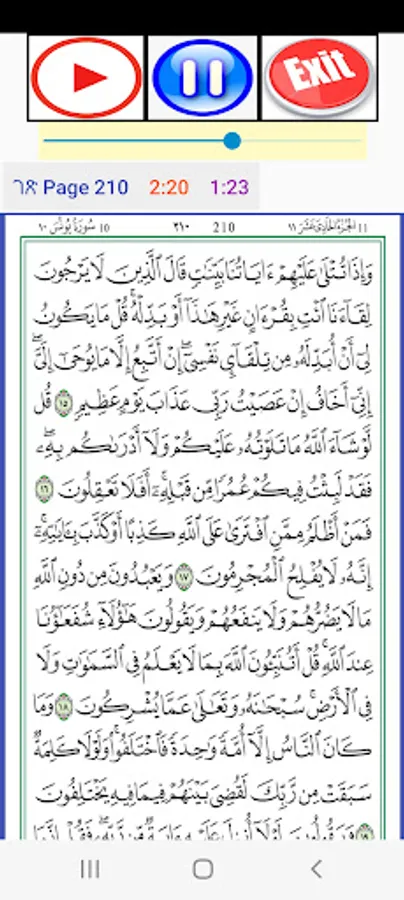 Exit
ገጽ Page 210 2:20 1:23
١٠ سُورَةُ يُونُسَ 10 ٢١٠ 210 ١١ الجُزْءُ الحَادِيَ عَشَرَ 11
وَإِذَا تُتْلَىٰ عَلَيْهِمْ ءَايَاتُنَا بَيِّنَٰتٍ قَالَ الَّذِينَ لَا يَرْجُونَ
لِقَآءَنَا ائْتِ بِقُرْءَانٍ غَيْرِ هَٰذَآ أَوْ بَدِّلْهُ ۚ قُلْ مَا يَكُونُ
لِىٓ أَنْ أُبَدِّلَهُۥ مِن تِلْقَآئِ نَفْسِىٓ ۖ إِنْ أَتَّبِعُ إِلَّا مَا يُوحَىٰٓ إِلَىَّ ۖ
إِنِّىٓ أَخَافُ إِنْ عَصَيْتُ رَبِّى عَذَابَ يَوْمٍ عَظِيمٍ ١٥ قُل
لَّوْ شَآءَ اللَّهُ مَا تَلَوْتُهُۥ عَلَيْكُمْ وَلَآ أَدْرَىٰكُم بِهِۦ ۖ
فَقَدْ لَبِثْتُ فِيكُمْ عُمُرًا مِّن قَبْلِهِۦٓ ۚ أَفَلَا تَعْقِلُونَ ١٦
فَمَنْ أَظْلَمُ مِمَّنِ افْتَرَىٰ عَلَى اللَّهِ كَذِبًا أَوْ كَذَّبَ بِـَٔايَٰتِهِۦٓ ۚ
إِنَّهُۥ لَا يُفْلِحُ الْمُجْرِمُونَ ١٧ وَيَعْبُدُونَ مِن دُونِ اللَّهِ
مَا لَا يَضُرُّهُمْ وَلَا يَنفَعُهُمْ وَيَقُولُونَ هَٰٓؤُلَآءِ شُفَعَٰٓؤُنَا
عِندَ اللَّهِ ۚ قُلْ أَتُنَبِّـُٔونَ اللَّهَ بِمَا لَا يَعْلَمُ فِى السَّمَٰوَٰتِ وَلَا
فِى الْأَرْضِ ۚ سُبْحَٰنَهُۥ وَتَعَٰلَىٰ عَمَّا يُشْرِكُونَ ١٨ وَمَا
كَانَ النَّاسُ إِلَّآ أُمَّةً وَٰحِدَةً فَاخْتَلَفُوا ۚ وَلَوْلَا كَلِمَةٌ
سَبَقَتْ مِن رَّبِّكَ لَقُضِىَ بَيْنَهُمْ فِيمَا فِيهِ يَخْتَلِفُونَ
١٩ وَيَقُولُونَ لَوْلَآ أُنزِلَ عَلَيْهِ ءَايَةٌ مِّن رَّبِّهِۦ ۖ فَقُلْ إِنَّمَا